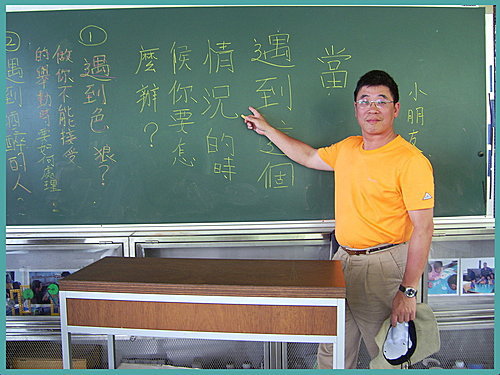 小朋友
當
遇到這個
情況的時
候你要怎
麼辦？
①遇到色狼？
做你不能接受
的舉動時要如何處理？
②遇到酒醉的人？